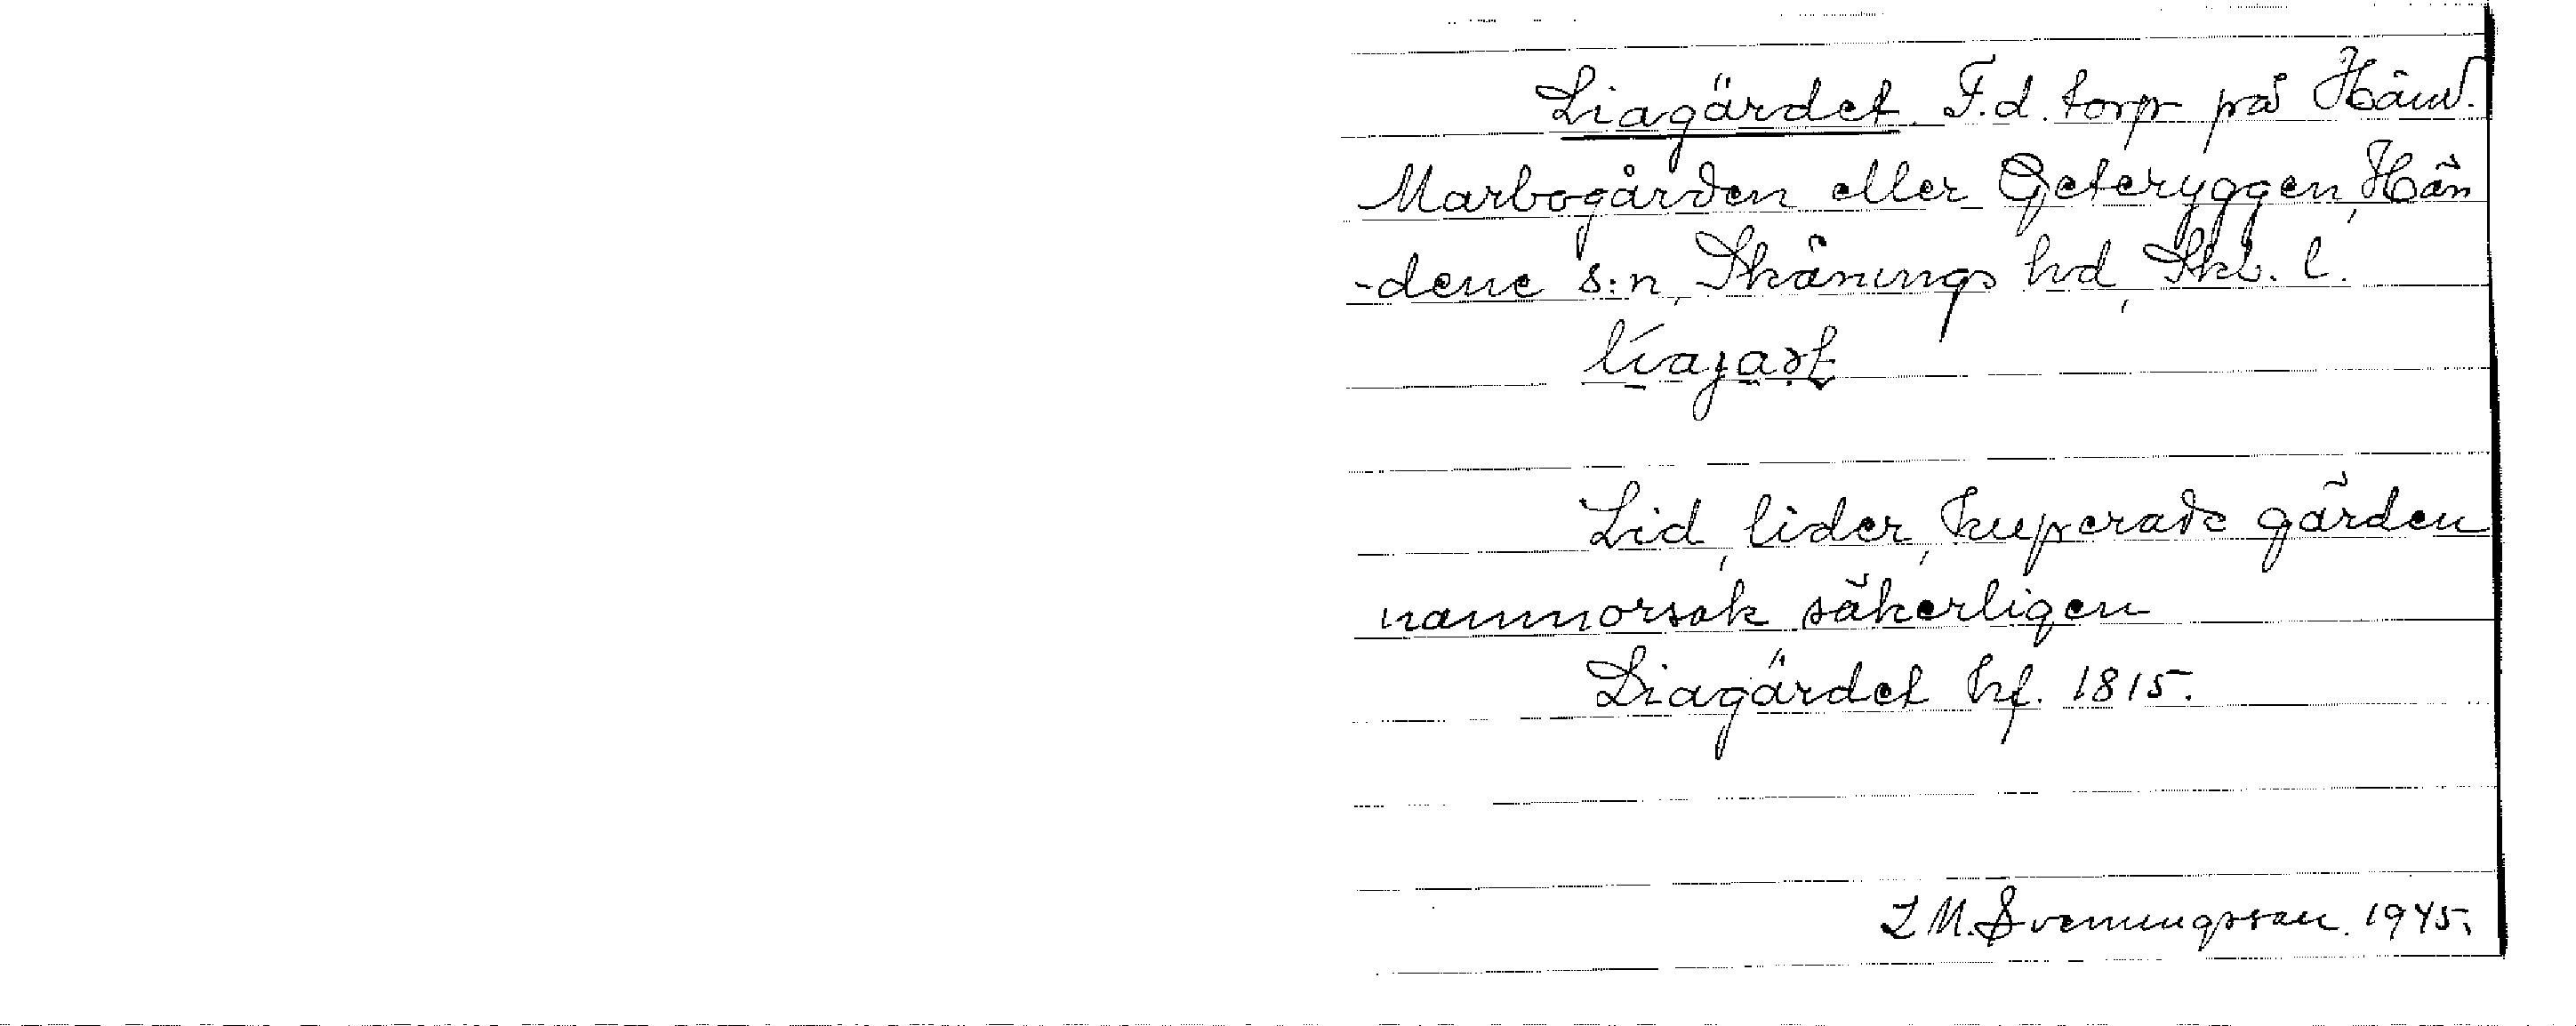 Liagärdet. F.d. torp på Händ.
Marbogården eller Geteryggen, Hän
-dene s:n, Skånings hd, Skb. l.
Lid, lider, kuperade gärden
namnorsak säkerligen
Liagärdet hf. 1815.
L M. Svenungsson. 1945.